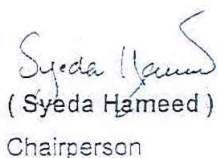 Syeda Hameed
( Syeda Hameed )
Chairperson